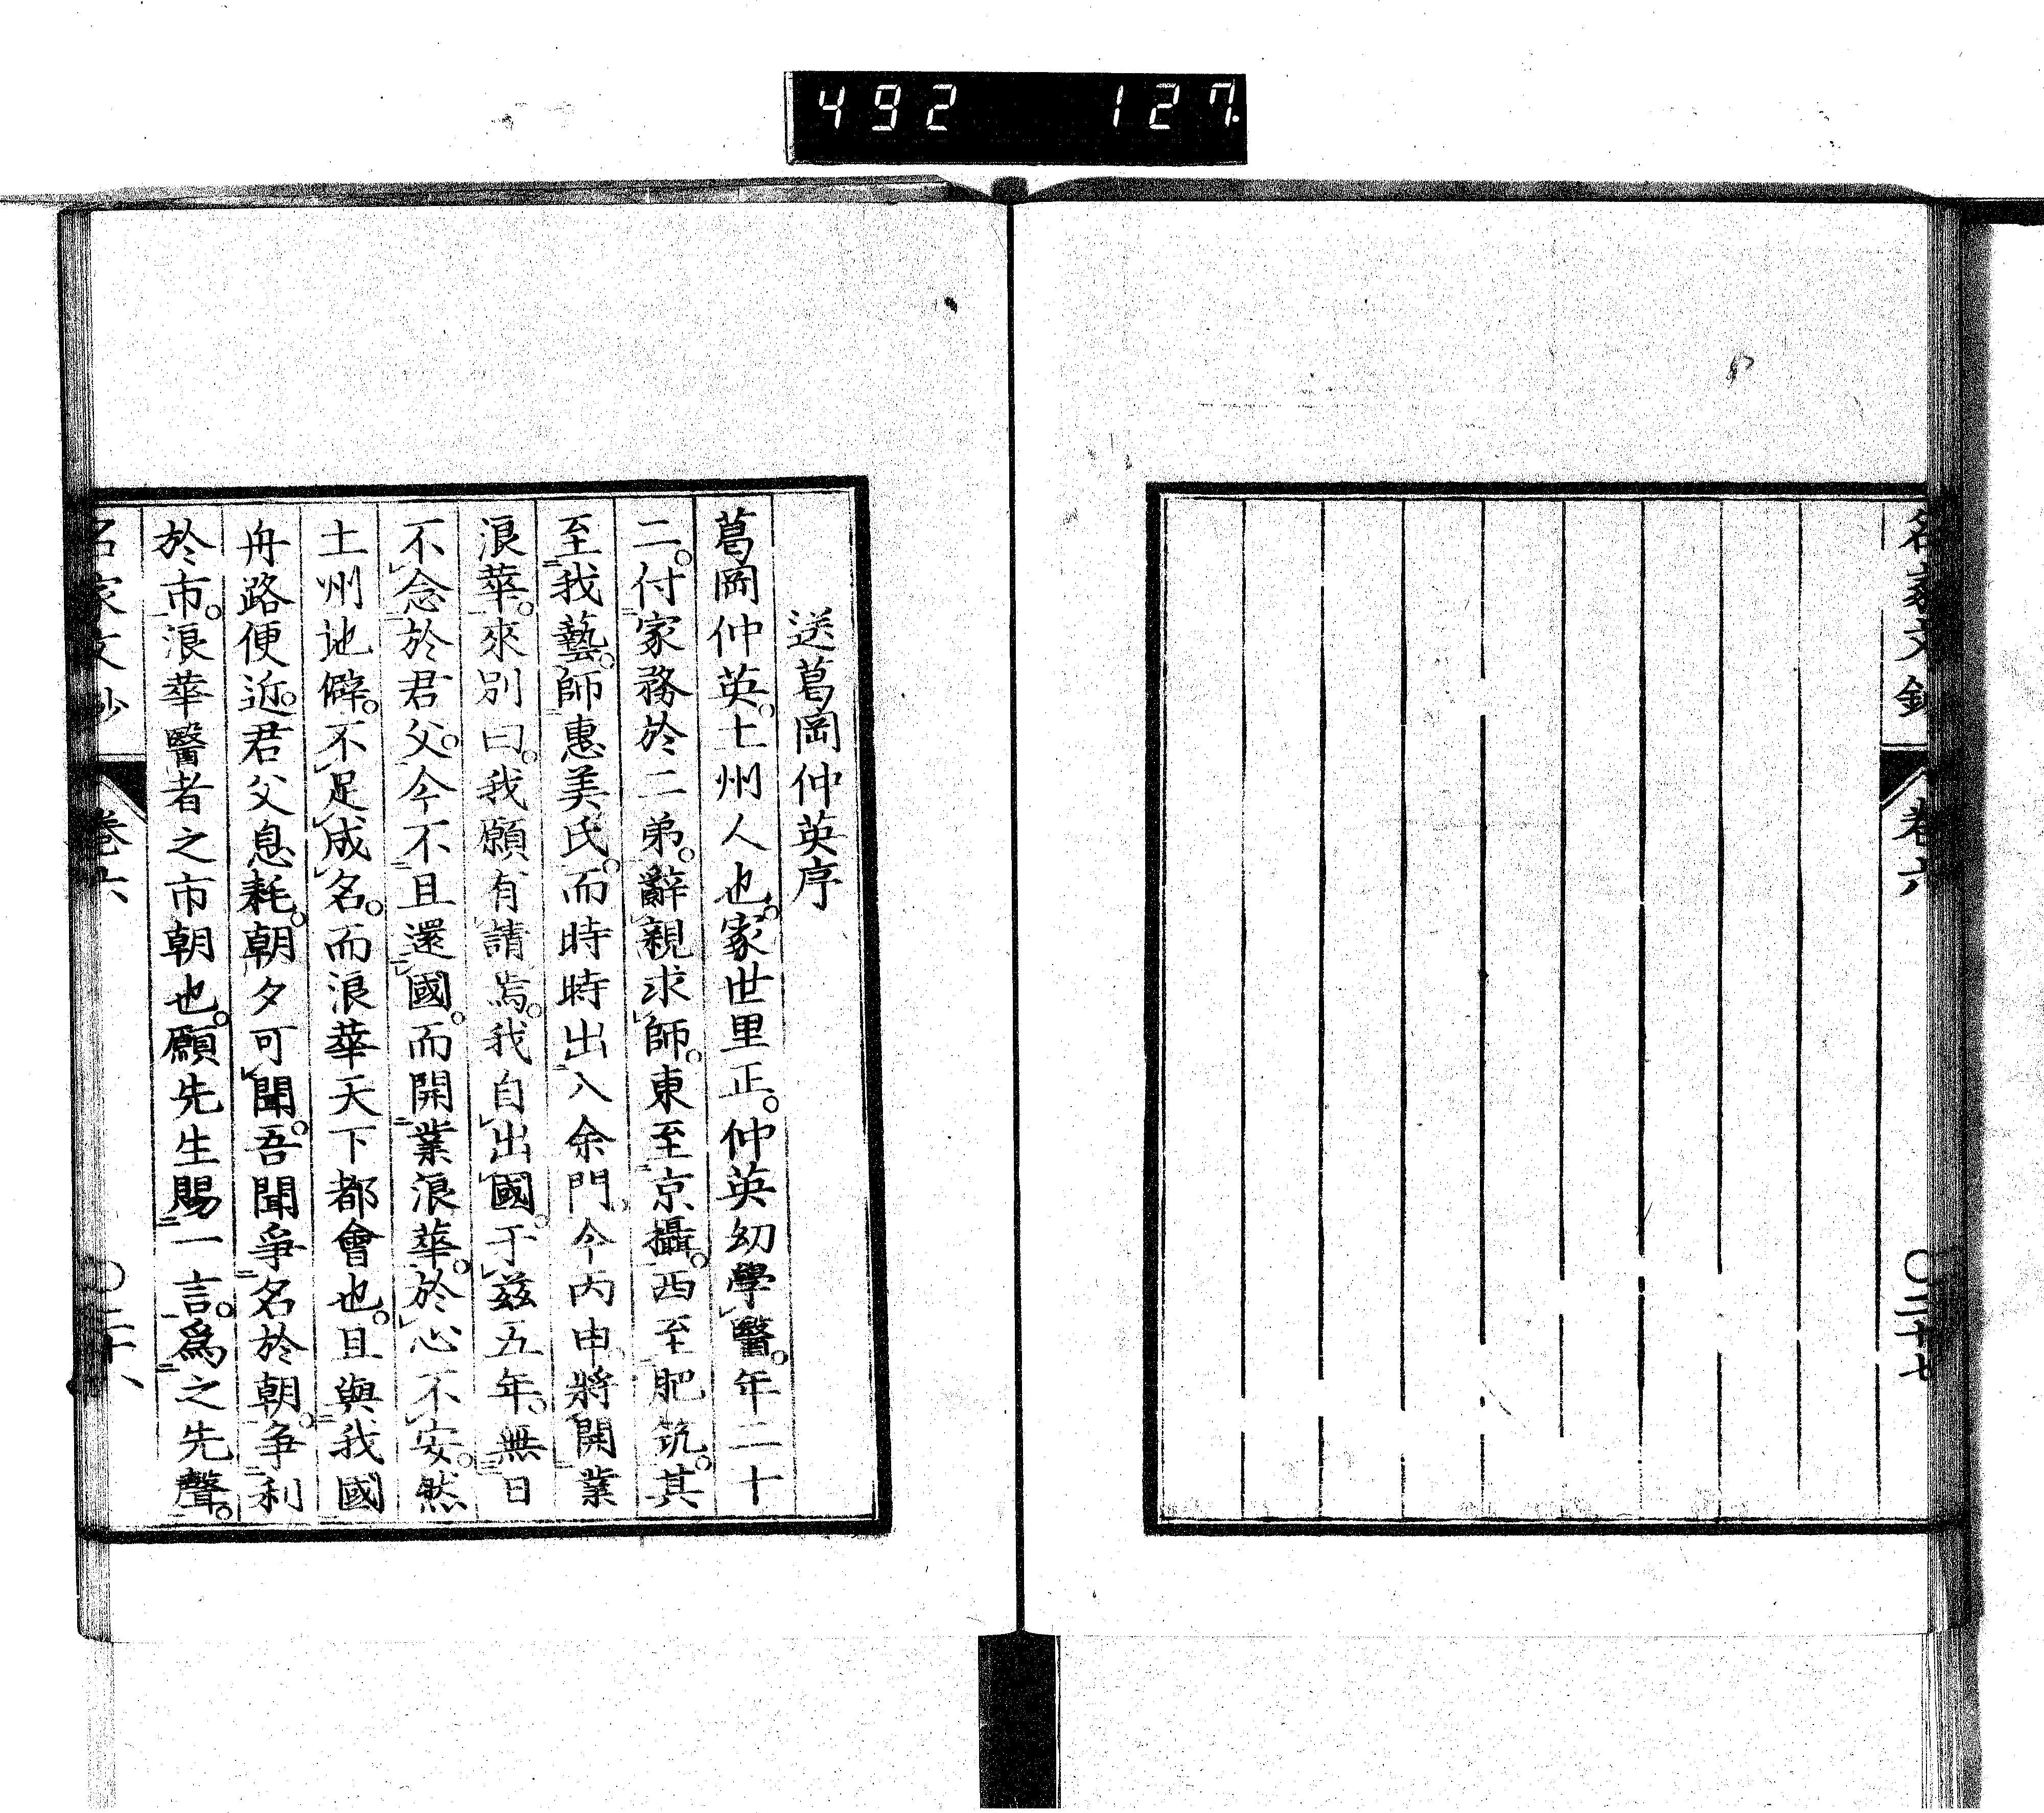 492 127.
名家文鈔 卷六 〇二十七
送葛岡仲英序
葛岡仲英。土州人也。家世里正。仲英幼學醫。年二十
二。付家務於二弟。辭親求師。東至京攝。西至肥筑。其
至我藝。師惠美氏。而時時出入余門。今丙申將開業
浪華。來別曰。我願有請焉。我自出國。于茲五年。無日
不念於君父。今不且還國。而開業浪華。於心不安。然
土州地僻。不足成名。而浪華天下都會也。且與我國
舟路便近。君父息耗。朝夕可聞。吾聞爭名於朝。爭利
於市。浪華醫者之市朝也。願先生賜一言。爲之先聲。
名家文鈔 卷六 〇二十八